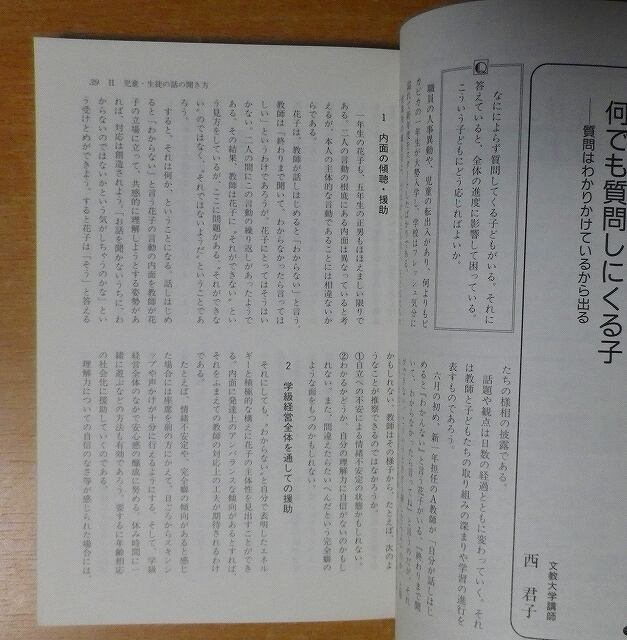 何でも質問しにくる子
――質問はわかりかけているから出る
文教大学講師
西 君子
なにによらず質問してくる子どもがいる。それに
答えていると、全体の進度に影響して困っている。
こういう子どもにどう応じればよいか。
職員の人事異動や、児童の転出入があり、何よりもピ
カピカの一年生が大勢入学し、学校はフレッシュ気分に
たちの様相の披露である。
話題や観点は日数の経過とともに変わっていく。それ
は教師と子どもたちの取り組みの深まりや学習の進行を
表すものであろう。
六月の初め、新一年担任のA教師が「自分が話しはじ
めると『わかんない』と言う花子がいる。『終わりまで聞
29 Ⅱ 児童・生徒の話の聞き方
1 内面の傾聴・援助
一年生の花子も、五年生の正男もほほえましい限りで
ある。二人の言動の根底にある内面は異なっていると考
えるが、本人の主体的な言動であることには相違ないか
らである。
花子は、教師が話しはじめると「わからない」と言う。
教師は「終わりまで聞いて、わからなかったら言ってほ
しい」というわけであろうが、花子にとってはそうはい
かない。二人の間にこの言動の繰り返しがあったようで
ある。その結果、教師は花子に、"それができない"とい
う見方をしているが、ここに問題がある。"それができな
い"のではなく、"それではないようだ"ということであ
ろう。
すると、それは何か、ということになる。「話しはじめ
ると『わからない』と言う花子の言動の内面を教師が花
子の立場に立って、共感的に理解しようとする姿勢があ
れば、対応は創造されよう。「お話を聞かないうちに、わ
からないのではないかという気がしちゃうのかな」とい
う受けとめができよう。すると花子は「そう」と答える
かもしれない。教師はその様子から、たとえば、次のよ
うなことが推察できるのではなかろうか。
①自立への不安による情緒不安定の状態かもしれない。
②わかるかどうか、自分の理解力に自信がないのかもし
れない。また、間違えたらたいへんだという完全癖の
ような面をもつのかもしれない。
2 学級経営全体を通しての援助
それにしても、"わからない"と自分で表明したエネル
ギーと積極的な構えに花子の主体性を見出すことができ
る。内面に発達上のアンバランスな傾向があるとすれば、
それをふまえての教師の対応上の工夫が期待されるわけ
である。
たとえば、情緒不安定や、完全癖の傾向があると感じ
た場合には座席を前の方にかえて、日ごろからスキンシ
ップや声かけが十分に行えるようにする。そして、学級
経営全体のなかで安心感の醸成に努める。休み時間に一
緒に遊ぶなどの方法も有効であろう。要するに年齢相応
の社会化に援助していくのである。
理解力についての自信のなさ等が感じられた場合には、